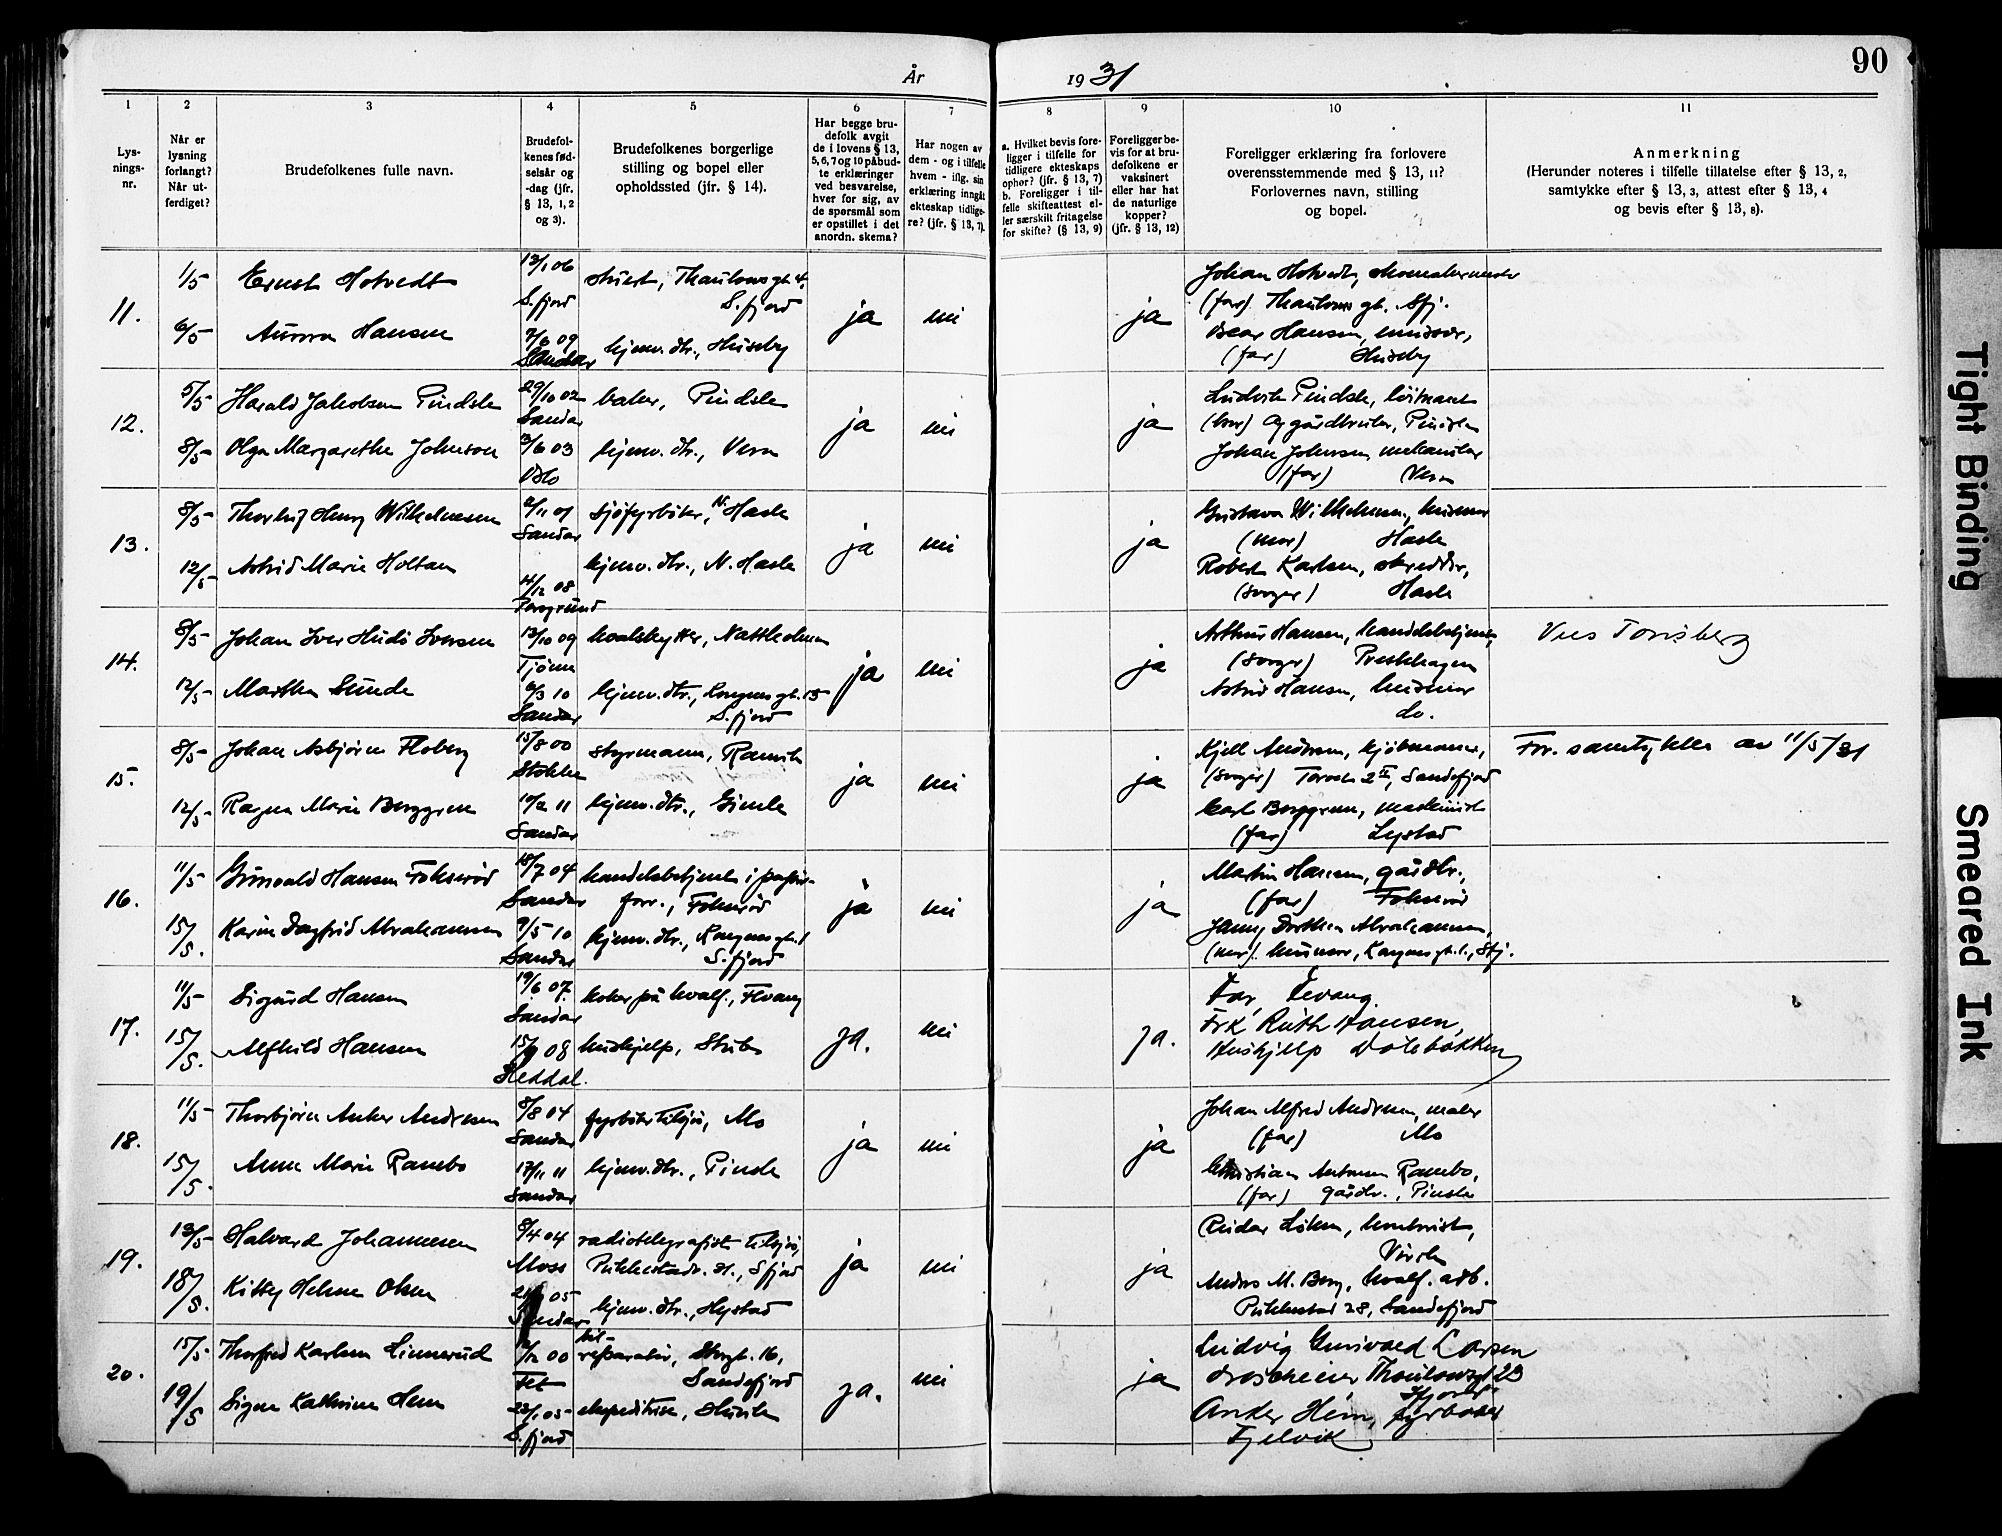 År 1931
90
1 2 3 4 5 6 7 8 9 10 11
Lys-
nings-
nr.
Når er
lysning
forlangt?
Når ut-
ferdiget?
Brudefolkenes fulle navn.
Brudefol-
kenes fød-
selsår og
-dag (jfr.
§ 13, 1, 2
og 3).
Brudefolkenes borgerlige
stilling og bopel eller
opholdssted (jfr. § 14).
Har begge bru-
defolk avgit
de i lovens § 13,
5, 6, 7 og 10 påbud-
te erklæringer
ved besvarelse,
hver for sig, av
de spørsmål som
er opstillet i det
anordn. skema?
Har nogen av
dem - og i tilfelle
hvem - iflg. sin
erklæring inngåt
ekteskap tidlige-
re? (jfr. § 13, 7).
a. Hvilket bevis fore-
ligger i tilfelle for
tidligere ekteskaps
ophør? (jfr. § 13, 7)
b. Foreligger i til-
felle skifteattest el-
ler særskilt fritagelse
for skifte? (§ 13, 9)
Foreligger be-
vis for at bru-
defolkene er
vaksinert
eller har hat
de naturlige
kopper?
(jfr. § 13, 12)
Foreligger erklæring fra forlovere
overensstemmende med § 13, 11?
Forlovernes navn, stilling
og bopel.
Anmerkning
(Herunder noteres i tilfelle tillatelse efter § 13, 2,
samtykke efter § 13, 3, attest efter § 13, 4
og bevis efter § 13, 8).
11.
1/5 Ernst Hotvedt 13/1 06 stuert, Thaulowsgt. 4,
S.fjord S.fjord
6/5 Aurora Hansen 7/6 09 hjemv. dtr., Huseby
Sandar
ja nei ja
Johan Hotvedt, skomakermester
(far) Thaulows gt. Sfj.
Oscar Hansen,
(far) Huseby
12.
5/5 Harald Jakobsen Pindsle 29/10 02 baker, Pindsle
Sandar
8/5 Olga Margarethe Johnson /6 03 hjemv. dtr., Vera
Oslo
ja nei ja
Ludvik Pindsle, løitnant
(bror) og gårdbruker, Pindsle
Johan Johnson, mekaniker
(far) Vera
13.
8/5 Thorleif Henry Wilhelmsen /11 01 sjøfyrbøter, N. Hasle
Sandar
12/5 Astrid Marie Holtan /12 08 hjemv. dtr., N. Hasle
Porsgrund
ja nei ja
Gustava Wilhelmsen, husmor
(mor) Hasle
Robert Karlsen, skredder,
(svoger) Hasle
14.
8/5 Johan Iver Hudö Iversen 13/10 09 hvalskytter, Natholmen
Tjöme
12/5 Marthe Sunde /3 10 hjemv. dtr., Kongens gt. 15
Sandar S.fjord
ja nei ja
Arthur Hansen, handelsbetjent,
(svoger) Presthagen
Astrid Hansen, husmor
do.
Vies Tønsberg
15.
8/5 Johan Asbjörn Floberg 15/8 00 styrmann, Ranvik
Stokke
12/5 Ragna Marie Berggren 10/2 11 hjemv. dtr., Gimle
Sandar
ja nei ja
Kjell Andersen, kjöbmann,
(svoger) Torvet 2 II, Sandefjord
Carl Berggren, maskinist
(far) Lystad
For. samtykke av 11/5/31
16.
11/5 Gunvald Hansen Fokserød 18/7 04 handelsbetjent i papir-
Sandar forr., Fokserød
15/5. Karin Dagfrid Abrahamsen 9/5 10 hjemv. dtr., Kongens gt. 1
Sandar S.fjord
ja nei ja
Martin Hansen, gårdbr.,
(far) Fokserød
Jenny Dorthea Abrahamsen,
(mor). husmor, Kongens gt. 1., Sfj.
17.
11/5 Sigurd Hansen 19/6 07. koker på hvalf., Fevang
Sandar
15/5. Alfhild Hansen 15/ 08 hushjelp, Stub
Heddal.
ja. nei ja.
Far, Fevang.
Frk Ruth Hansen,
Hushjelp Dølebakken
18.
11/5 Thorbjörn Anker Andersen 8/8 04 fyrböter tilsjös, Mo
Sandar
15/5. Anne Marie Rambo 17/11 11 hjemv. dtr., Pindsle
Sandar
ja nei ja
Johan Alfred Andersen, maler
(far) Mo
Christian Antonsen Rambo,
(far) gårdbr., Pindsle
19.
13/5 Halvard Johannesen 8/4 04 radiotelegrafist tilsjös,
Moss Pukkestadv. 21., Sfjord
18/5. Kitty Helene Olsen 05 hjemv. dtr., Hystad
Sandar
ja nei ja
Reidar Løken,
Virik
Anders M. Berg, hvalf. arb.
Pukkestad 28, Sandefjord
20.
15/5. Thorfred Karlsen Linnerud /12 00 bil-
reparatør, Storgt. 16,
Fet Sandefjord
19/5 Signe Kathrine Hem 23/1 05 ekspeditrise, Huvik
S.fjord
ja. nei ja
Ludvig Gunvald Larsen
drosjeeier Thaulowsgt 23
Sfjord
Anker Hem, fyrbøter
Fjelvik
Tight Binding
Smeared Ink